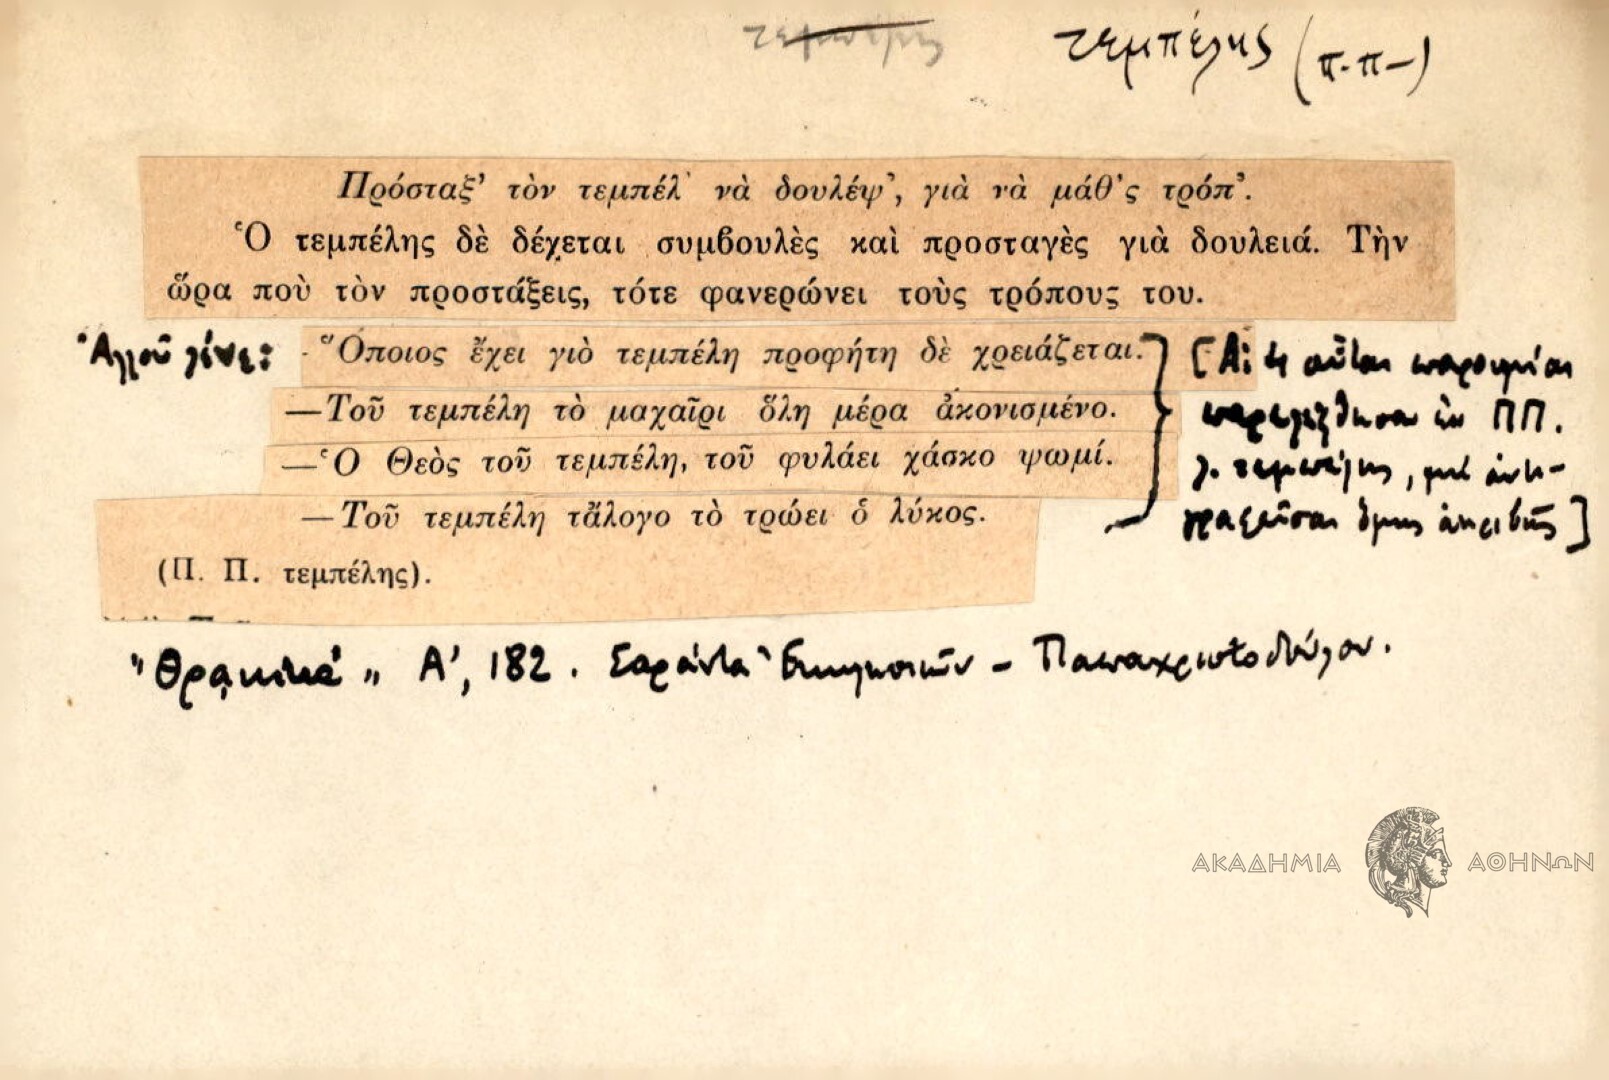 τεμπέλης τεμπέλης (π.π-)
Πρόσταξ' τὸν τεμπέλ' νὰ δουλέψ', γιὰ νὰ μάθ'ς τρόπ'.
Ὁ τεμπέλης δὲ δέχεται συμβουλὲς καὶ προσταγὲς γιὰ δουλειά. Τὴν
ὥρα ποὺ τὸν προστάξεις, τότε φανερώνει τοὺς τρόπους του.
Ἀλλοῦ λένε: Ὅποιος ἔχει γιὸ τεμπέλη προφήτη δὲ χρειάζεται. [Αἱ 4 αὗται παροιμίαι
—Τοῦ τεμπέλη τὸ μαχαῖρι ὅλη μέρα ἀκονισμένο. παρελήφθησαν ἐκ ΠΠ.
—Ὁ Θεὸς τοῦ τεμπέλη, τοῦ φυλάει χάσκο ψωμί. λ. τεμπέλης, μὴ ἀντι-
—Τοῦ τεμπέλη τἄλογο τὸ τρώει ὁ λύκος. γραφεῖσαι ὅμως ἀκριβῶς]
(Π. Π. τεμπέλης).
"Θρᾳκικά" Α', 182. Σαράντα Ἐκκλησιῶν - Παπαχριστοδούλου.
ΑΚΑΔΗΜΙΑ ΑΘΗΝΩΝ